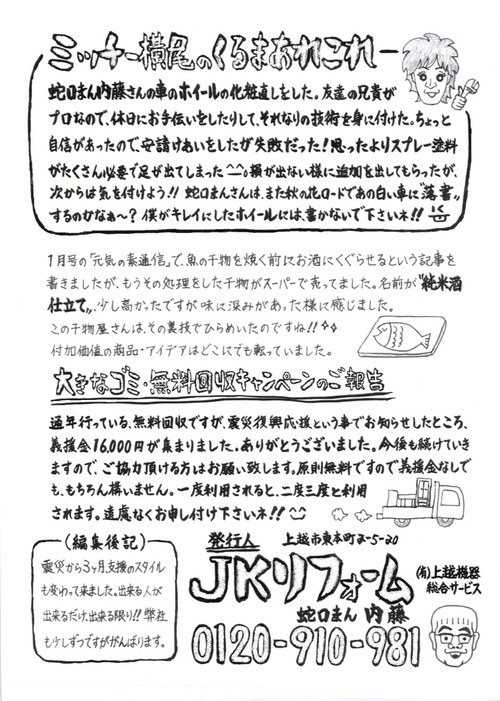 ミッチー横尾のくるまあれこれー
蛇口まん内藤さんの車のホイールの化粧直しをした。友達の兄貴が
プロなので、休日にお手伝いをしたりして、それなりの技術を身に付けた。ちょっと
自信があったので、安請けあいをしたが失敗だった!思ったよりスプレー塗料
がたくさん必要で足が出てしまった^^;。損が出ない様に追加を出してもらったが、
次からは気を付けよう!! 蛇口まんさんは、また秋の花ロードであの白い車に"落書"
するのかなぁ〜? 僕がキレイにしたホイールには、書かないで下さいネ!!
1月号の「元気の素通信」で、魚の干物を焼く前にお酒にくぐらせるという記事を
書きましたが、もうその処理をした干物がスーパーで売ってました。名前が"純米酒
仕立て"。少し高かったですが味に深みがあった様に感じました。
この干物屋さんは、その裏技でひらめいたのですね!!
付加価値の商品・アイデアはどこにでも転っていました。
大きなゴミ・無料回収キャンペーンのご報告
通年行っている、無料回収ですが、震災復興応援という事でお知らせしたところ、
義援金16,000円が集まりました。ありがとうございました。今後も続けていき
ますので、ご協力頂ける方はお願い致します。原則無料ですので義援金なしで
も、もちろん構いません。一度利用されると、二度三度と利用
されます。遠慮なくお申し付け下さいネ!!
(編集後記)
震災から3ヶ月、支援のスタイル
も変わって来ました。出来る人が
出来るだけ、出来る限り!! 弊社
も少しずつですががんばります。
発行人 上越市東本町2-5-20
JKリフォーム
(有)上越機器
総合サービス
蛇口まん 内藤
0120-910-981